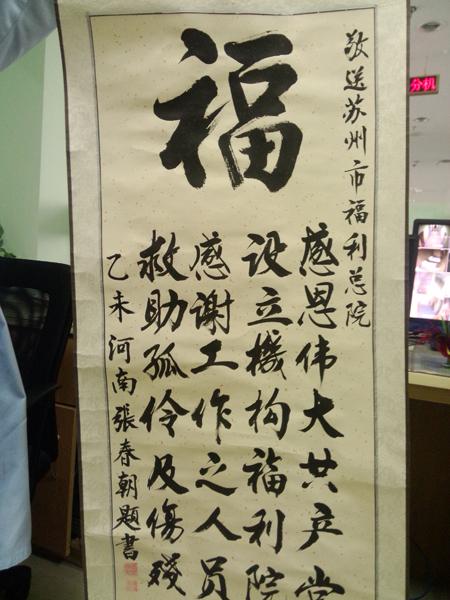 福
敬送苏州市福利总院
感恩伟大共产党
设立機构福利院
感谢工作之人员
救助孤伶及傷殘
乙未河南張春朝题書
分机